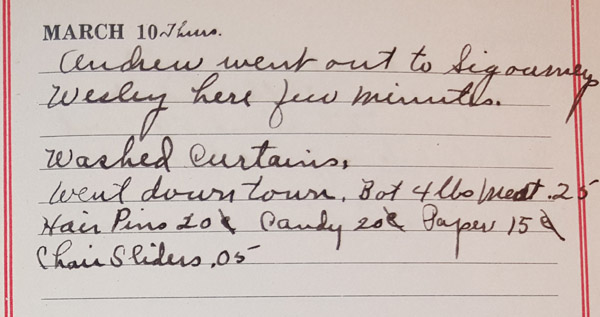 MARCH 10 Thurs.
Andrew went out to Sigourney
Wesley here few minutes.
Washed Curtains,
Went down town. Bot 4 lbs Meat .25
Hair Pins 20¢ Candy 20¢ Paper 15¢
Chair Sliders .05